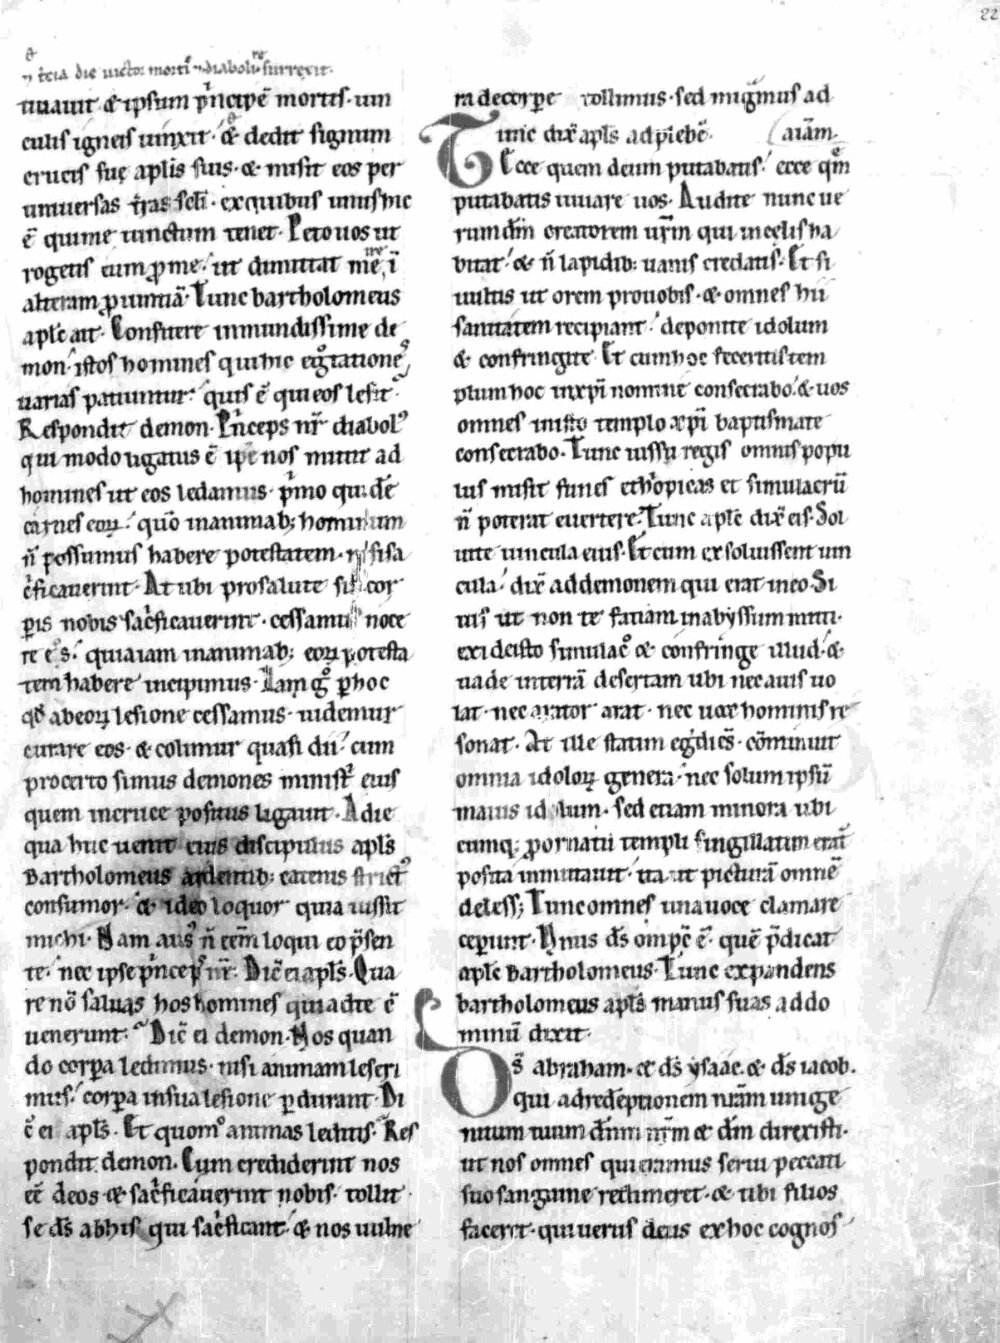 22
⁊ t͛cia die uictor mortis ⁊ diaboli surrexit.
uauit & ipsum p͛ncipē mortis· uin
culis igneis uinxit· & dedit signum
crucis suę aplis suis· & misit eos per
uniuersas t͛ras scli· ex quibus unus hic
ē qui me uinctum tenet· Peto uos ut
rogetis eum ꝓ me· ut dimittat me, ī
alteram ꝓuintiā· Tunc bartholomeus
apls͛ ait· Confitere inmundissime de
mon· istos homines qui hic egͦtationeꝰ
uarias patiuntur· quis ē qui eos lesit·
Respondit demon· Pinceps nr͛ diabolꝰ
qui modo ligatus ē ipse nos mittit ad
homines ut eos ledamus· p͛mo quidē
carnes eoꝝ· quō in animab; hominum
ñ possumus habere potestatem· nisi sa
c͛ficauerint· At ubi pro salute sui cor
ꝑis nobis sac͛ficauerint· cessamus noce
re eis· quia iam in animab; eoꝝ potesta
tem habere incipimus· Iam gͦ ꝑ hoc
qđ ab eoꝝ lesione cessamus· uidemur
curare eos· & colimur quasi dii· cum
pro certo simus demones minist͛ eius
quem in cruce positus ligauit· A die
qua huc uenit eius discipulus apls͛
Bartholomeus ardentib; catenis strictꝰ
consumor· & ideo loquor quia iussit
michi· Nam ausꝰ ñ eēm loqui eo p̄sen
te· nec ipse p͛nceps nr͛· Dic̄ ei apls͛· Qua
re nō saluas hos homines qui ad te
uenerunt· Dic̄ ei demon· Nos quan
do corꝑa ledimus· nisi animam leseri
mus· corꝑa in sua lesione ꝑdurant· Di
c̄ ei apls͛· Et quomͦ animas leditis· Res
pondit demon· Cum crediderint nos
eē deos & sac͛ficauerint nobis· tollit
se ds͛ ab his qui sac͛ficant· & nos uulne
ra de corꝑe tollimus· sed mig͛mus ad
Tunc dix͛ apls͛ ad plebē· aīam·
Ecce quem deum putabatis· ecce qm̄
putabatis iuuare uos· Audite nunc ue
rum dm̄ creatorem ur͛m qui in celis ha
bitat· & ñ lapidib; uanis credatis· Et si
uultis ut orem pro uobis· & omnes hii
sanitatem recipiant· deponite idolum
& confringite· Et cum hoc feceritis tem
plum hoc in xp̄i nomine consecrabo· & uos
omnes in isto templo xp̄i baptismate
consecrabo· Tunc iussu regis omnis popu
lus misit funes et tropicas et simulacrū
ñ poterat euertere· Tunc apls͛ dix͛ eis· Sol
uite uincula eius· Et cum exsoluissent uin
cula· dix͛ ad demonem qui erat in eo· Si
uis ut non te faciam in abyssum mitti·
exi de isto simulacͦ & confringe illud· &
uade in terrā desertam ubi nec auis uo
lat· nec arator arat· nec uox hominis re
sonat· At ille statim egͬdiēs· cōminuit
omnia idoloꝝ genera· nec solum ipsū
maius idolum· sed etiam minora ubi
cumq; ꝓ ornatu templi singillatim erāt
posita inminuit· ita ut picturā omnē
deless;· Tunc omnes una uoce clamare
ceperunt· Unus ds͛ omp̄c ē· quē p̄dicat
apls͛ Bartholomeus· Tunc expandens
bartholomeus apls͛ manus suas ad do
minū dixit·
Ds͛ abraham· et ds͛ ysaac· & ds͛ iacob·
qui ad redēptionem nr͛am unige
nitum tuum dn̄m nr͛m & dm̄ direxisti·
ut nos omnes qui eramus serui peccati
suo sanguine redimeret· & ubi filios
faceret· qui uerus deus ex hoc cognos